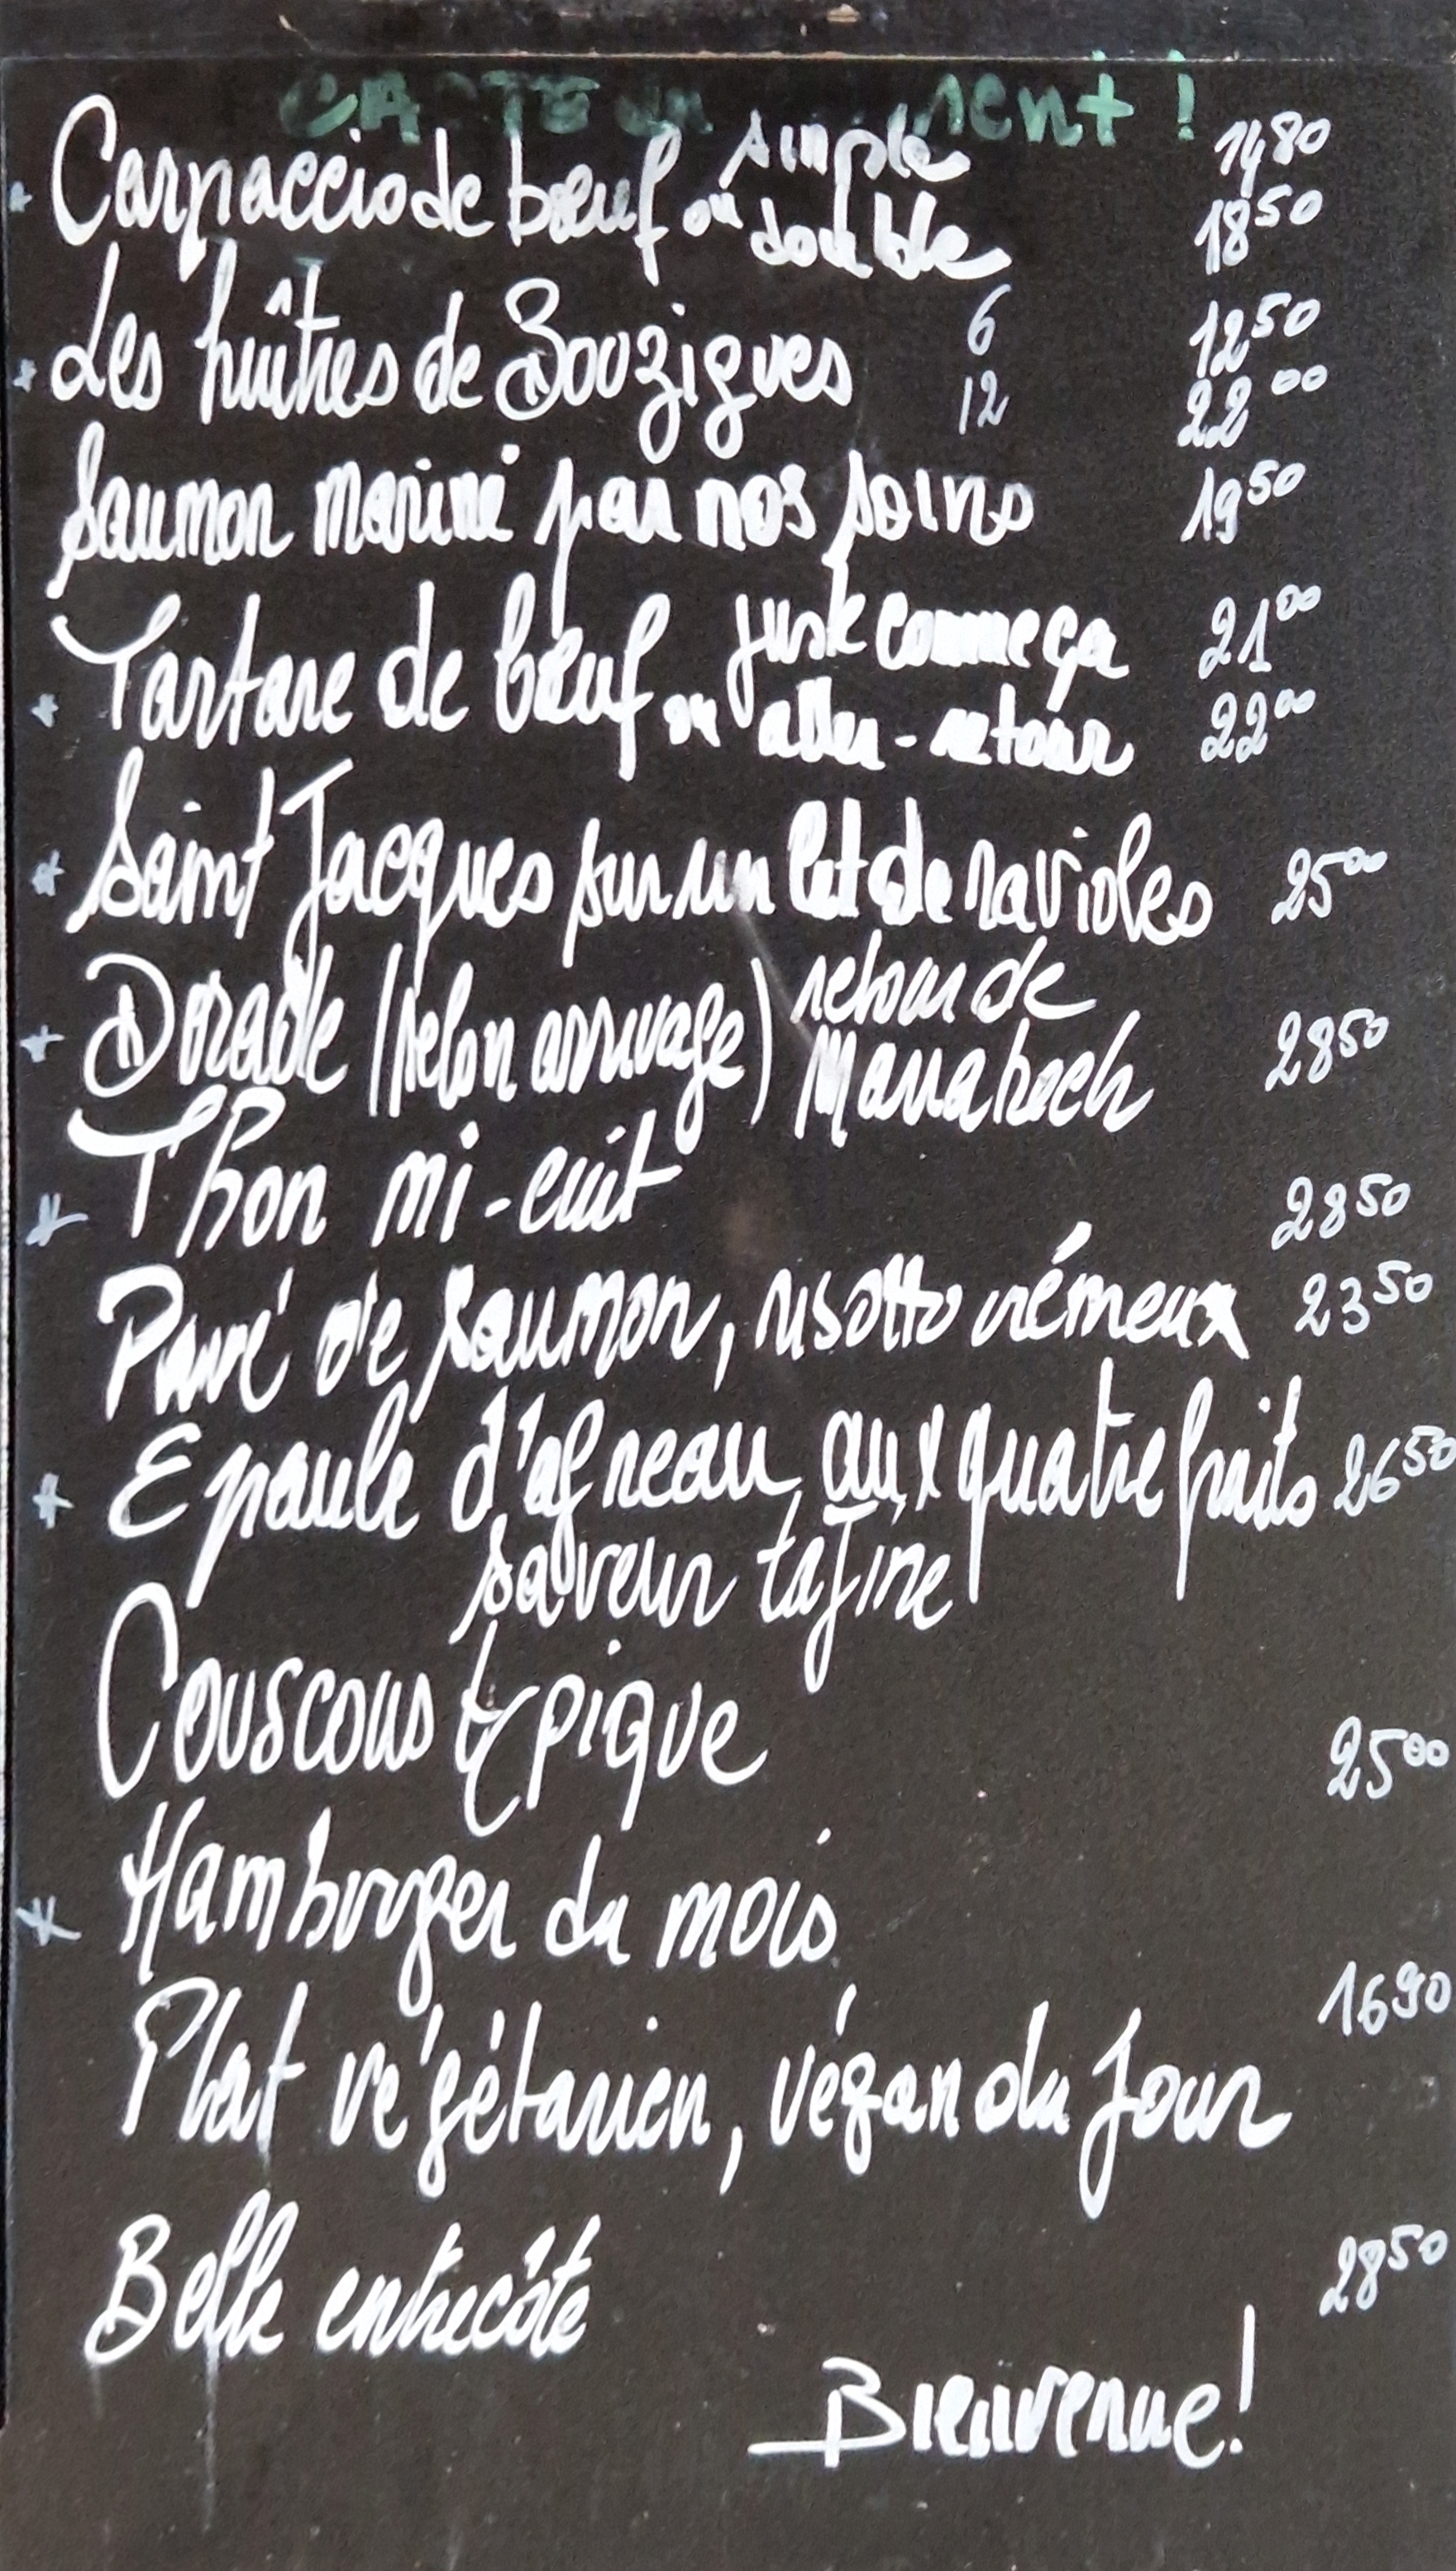 CARTE ment !
* Carpaccio de bœuf simple 14 80
ou double 18 50
* Les huîtres de Bouzigues 6 12 50
12 22 00
Saumon mariné par nos soins 19 50
* Tartare de bœuf juste comme ça 21 00
ou aller-retour 22 00
* Saint Jacques sur un lit de ravioles 25 00
* Dorade (selon arrivage) retour de
Marrakech 28 50
* Thon mi-cuit 28 50
Pavé de saumon, risotto crémeux 23 50
* Epaule d'agneau aux quatre fruits 26 50
saveur tajine
Couscous typique 25 00
* Hamburger du mois
16 90
Plat végétarien, végan du jour
Belle entrecôte 28 50
Bienvenue!